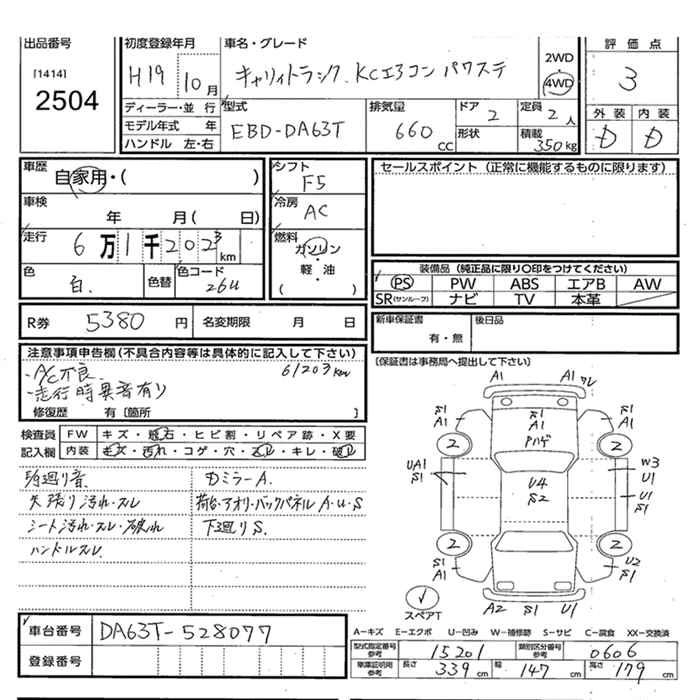 出品番号
[1414]
2504
初度登録年月
H19 10月
車名・グレード
キャリィトラック.KCエアコン パワステ
2WD
4WD
評価点
3
外装 内装
D D
ディーラー・並行
モデル年式 年
ハンドル 左・右
型式
EBD-DA63T
排気量
660 CC
ドア 2
形状
定員 2人
積載 350kg
車歴
自家用・( )
車検
年 月( 日)
走行
6万1千202³km
色
白.
色替
色コード
26U
シフト
F5
冷房
AC
燃料
ガソリン
・
軽・油
( )
セールスポイント(正常に機能するものに限ります)
装備品(純正品に限り○印をつけてください)
PS PW ABS エアB AW
SR(サンルーフ) ナビ TV 本革
R券 5380 円 名変期限 月 日
新車保証書
有・無
後日品
(保証書は事務局へ提出して下さい)
注意事項申告欄(不具合内容等は具体的に記入して下さい)
・AC不良. 61203km
・走行時異音有り
修復歴 有〔箇所 〕
検査員 FW キズ・飛石・ヒビ割・リペア跡・X要
記入欄 内装 キズ・汚れ・コゲ・穴・スレ・キレ・破れ
Dミラー A.
天張り汚れ・スレ 荷台・アオリ・バックパネル A・U・S
シート汚れ・スレ・破れ 下廻りS.
ハンドルスレ
A1 A1 ワレ
S1 A1
S1 A1 ハゲ
S1 A1
2 2
UA1 S1
U4 S2
W3 U1
U1 S1
2 2
S1 A1
U2 S1
スペアT
A2 S1 U1
車台番号 DA63T-528077
登録番号
A―キズ E―エクボ U―凹み W―補修跡 S―サビ C―腐食 XX―交換済
型式指定番号 参考 15201 類別区分番号 参考 0606
車庫証明用 参考 長さ 339cm 幅 147cm 高さ 179cm